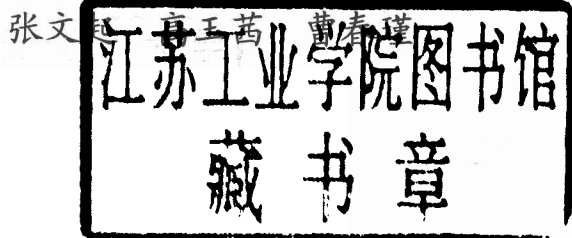 张文起 高玉茜 曹春瑾
江苏工业学院图书馆
藏书章